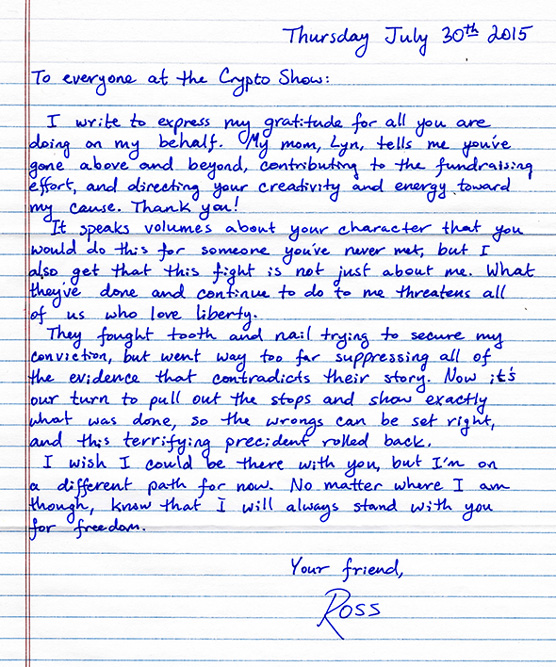 Thursday July 30th 2015
To everyone at the Crypto Show:
I write to express my gratitude for all you are
doing on my behalf. My mom, Lyn, tells me you've
gone above and beyond, contributing to the fundraising
effort, and directing your creativity and energy toward
my cause. Thank you!
It speaks volumes about your character that you
would do this for someone you've never met, but I
also get that this fight is not just about me. What
they've done and continue to do to me threatens all
of us who love liberty.
They fought tooth and nail trying to secure my
conviction, but went way too far suppressing all of
the evidence that contradicts their story. Now it's
our turn to pull out the stops and show exactly
what was done, so the wrongs can be set right,
and this terrifying precident rolled back.
I wish I could be there with you, but I'm on
a different path for now. No matter where I am
though, know that I will always stand with you
for freedom.
Your friend,
Ross